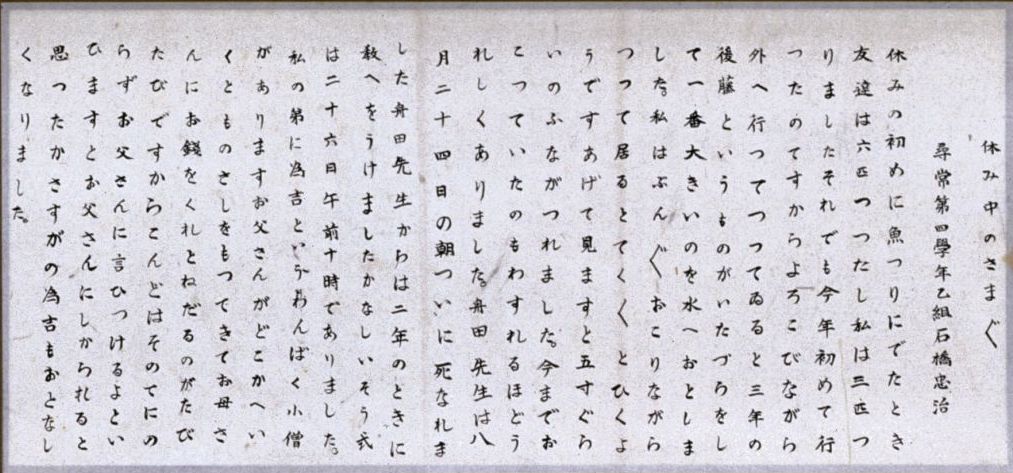 休み中のさま〴〵
尋常第四學年乙組石橋忠治
休みの初めに魚つりにでたとき
友達は六匹つつたし私は三匹つ
りましたそれでも今年初めて行
つたのてすからよろこびながら
外へ行つてつつてゐると三年の
後藤というものがいたづらをし
て一番大きいのを水へおとしま
した。私はぶん〴〵おこりながら
つつて居るとてく〱とひくよ
うですあげて見ますと五寸ぐら
いのふながつれました。今までお
こつていたのもわすれるほどう
れしくありました。舟田先生は八
月二十四日の朝ついに死なれま
した舟田先生からは二年のときに
敎へをうけましたかなしいそう式
は二十六日午前十時でありました。
私の第に為吉というわんぱく小僧
がありますお父さんがどこかへい
くとものさしをもつてきてお母さ
んにお錢をくれとねだるのがたび
たびですからこんどはそのてにの
らずお父さんに言ひつけるよとい
ひますとお父さんにしかられると
思つたかさすがの為吉もおとなし
くなりました。